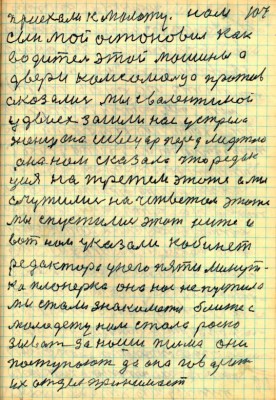 приехали к Молоту. нам 107
сын мой остоновил как
водител этой машины а
двери комсомольца против
сказали мы с валентиной
у двоих зашли нас устрела
женщина швейцар перед лифтом
она нам сказала што редак
ция на третем этоже а мы
очутилис на четвертом этоже
мы спустилис этот ниже и
вот нам указали кобинет
редактора у него пяти минут-
ка планерка она нас не пустила
мы стали знакомится ближе с
молодежу нам стала роско
зыват за наши писма они
поступают да она говарит
их отдел принимает